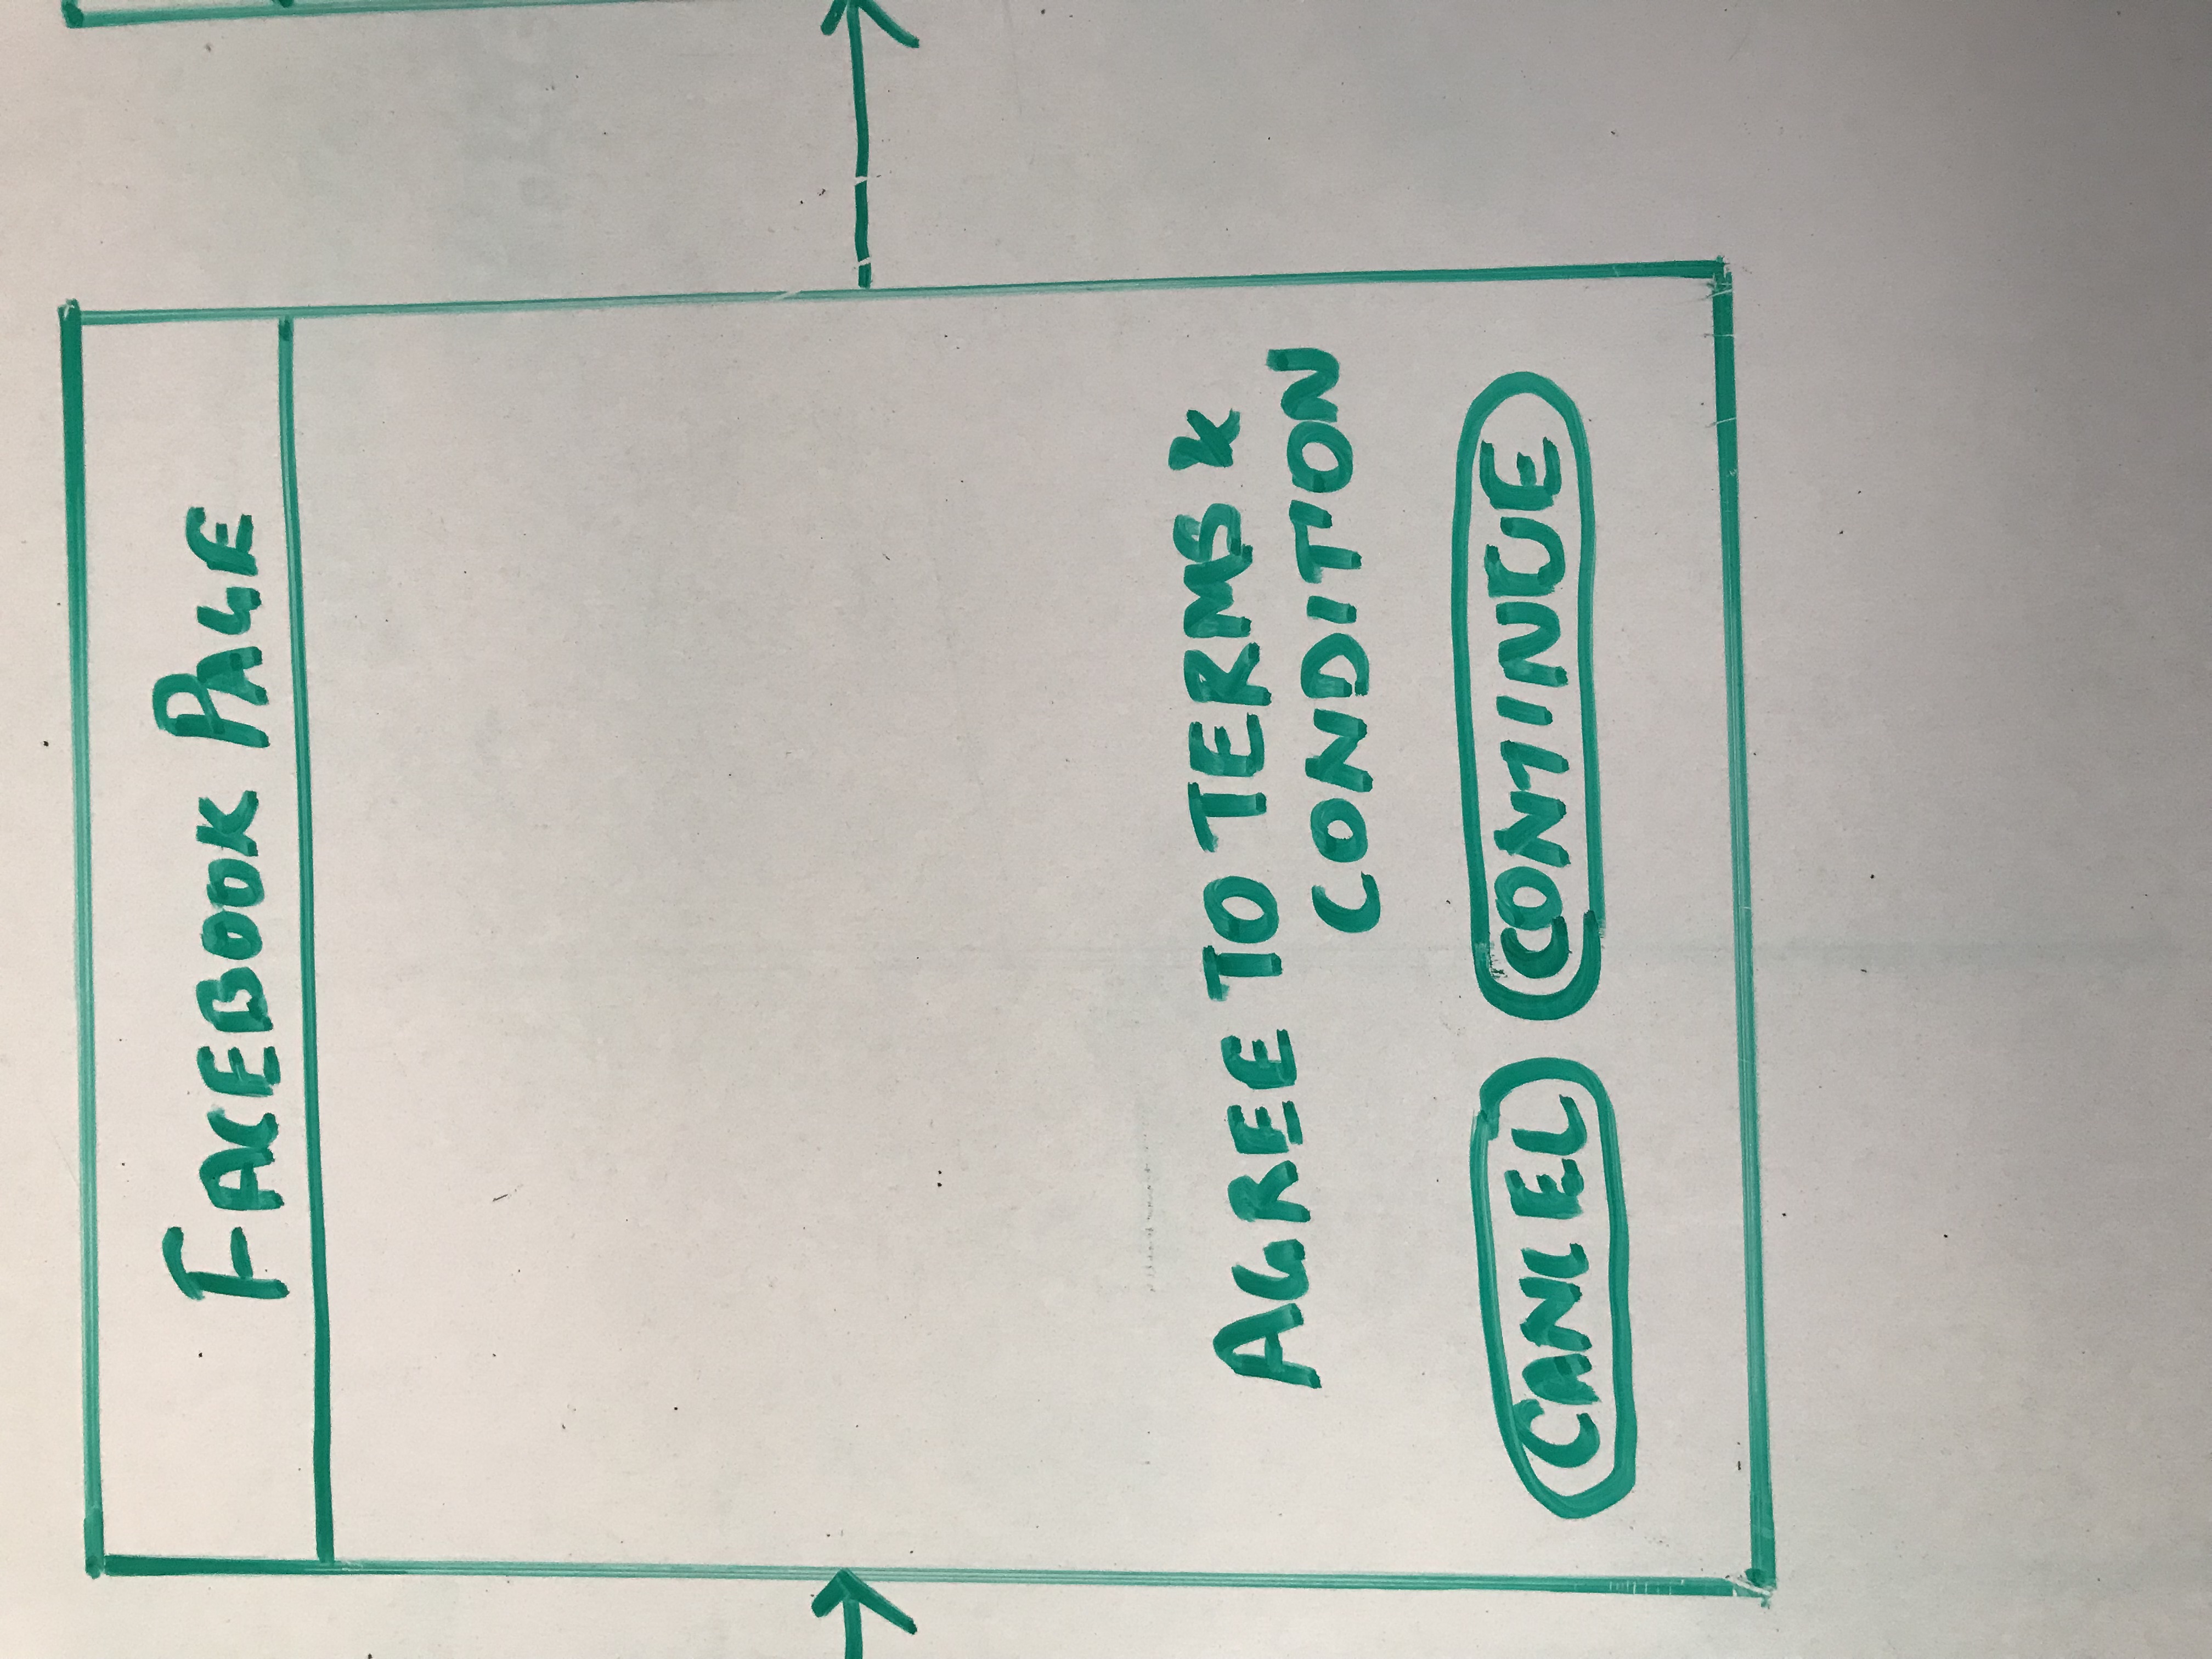 FACEBOOK PAGE
AGREE TO TERMS &
CONDITION
CANCEL CONTINUE